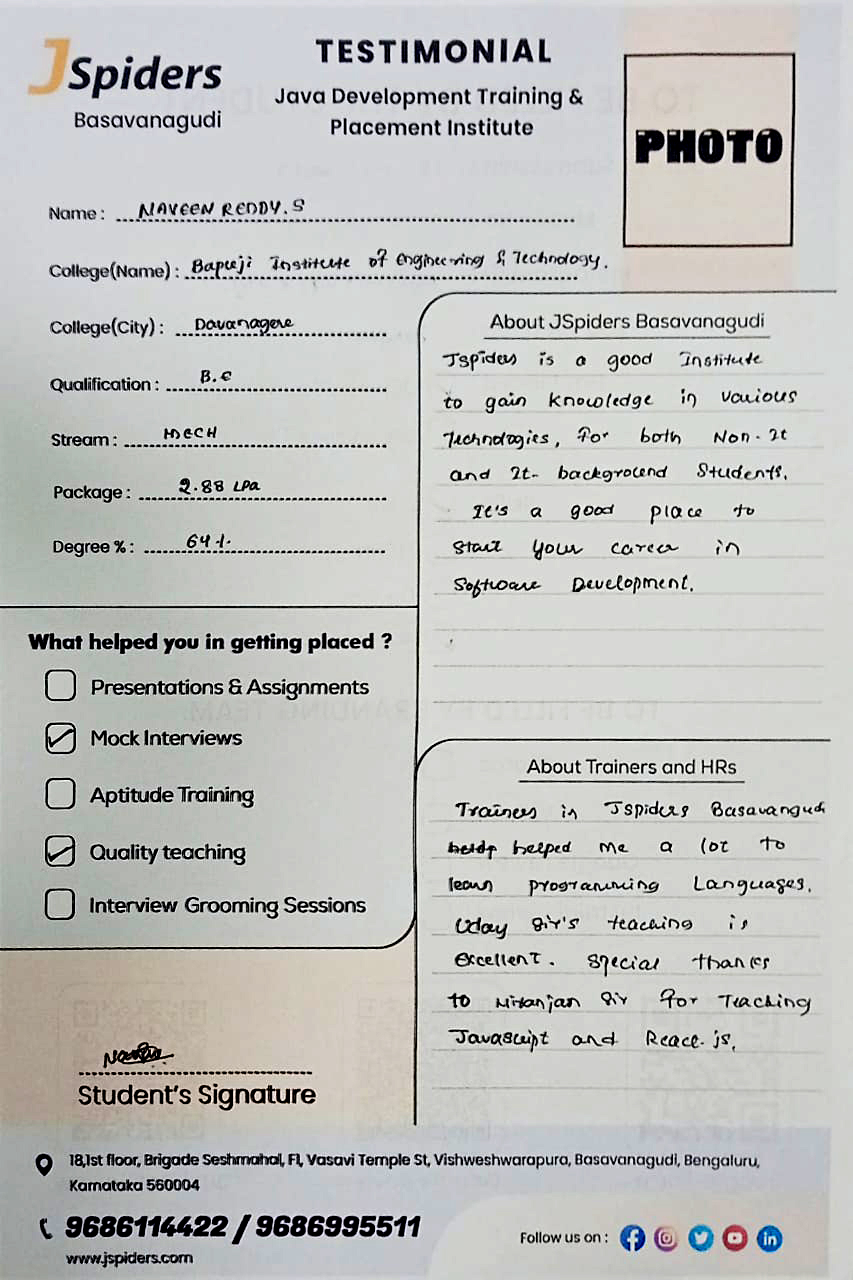 JSpiders
Basavanagudi
TESTIMONIAL
Java Development Training &
Placement Institute
PHOTO
Name : NAVEEN REDDY.S
College(Name) : Bapuji Institute of Engineering & Technology.
College(City) : Davanagere
Qualification : B.E
Stream : MECH
Package : 2.88 LPA
Degree % : 64%
What helped you in getting placed ?
Presentations & Assignments
Mock Interviews
Aptitude Training
Quality teaching
Interview Grooming Sessions
About JSpiders Basavanagudi
JSpiders is a good Institute
to gain knowledge in various
Technologies, for both Non-It
and It- background Students.
It's a good place to
Start your career in
Software Development.
About Trainers and HRs
Trainers in Jspiders Basavangudi
helped me a lot to
learn programming Languages.
Uday Sir's teaching is
excellent. Special thanks
to Niranjan Sir for Teaching
Javascript and React.js.
Student's Signature
18,1st floor, Brigade Seshmahal, F1, Vasavi Temple St, Vishweshwarapura, Basavanagudi, Bengaluru,
Karnataka 560004
9686114422 / 9686995511
www.jspiders.com
Follow us on :